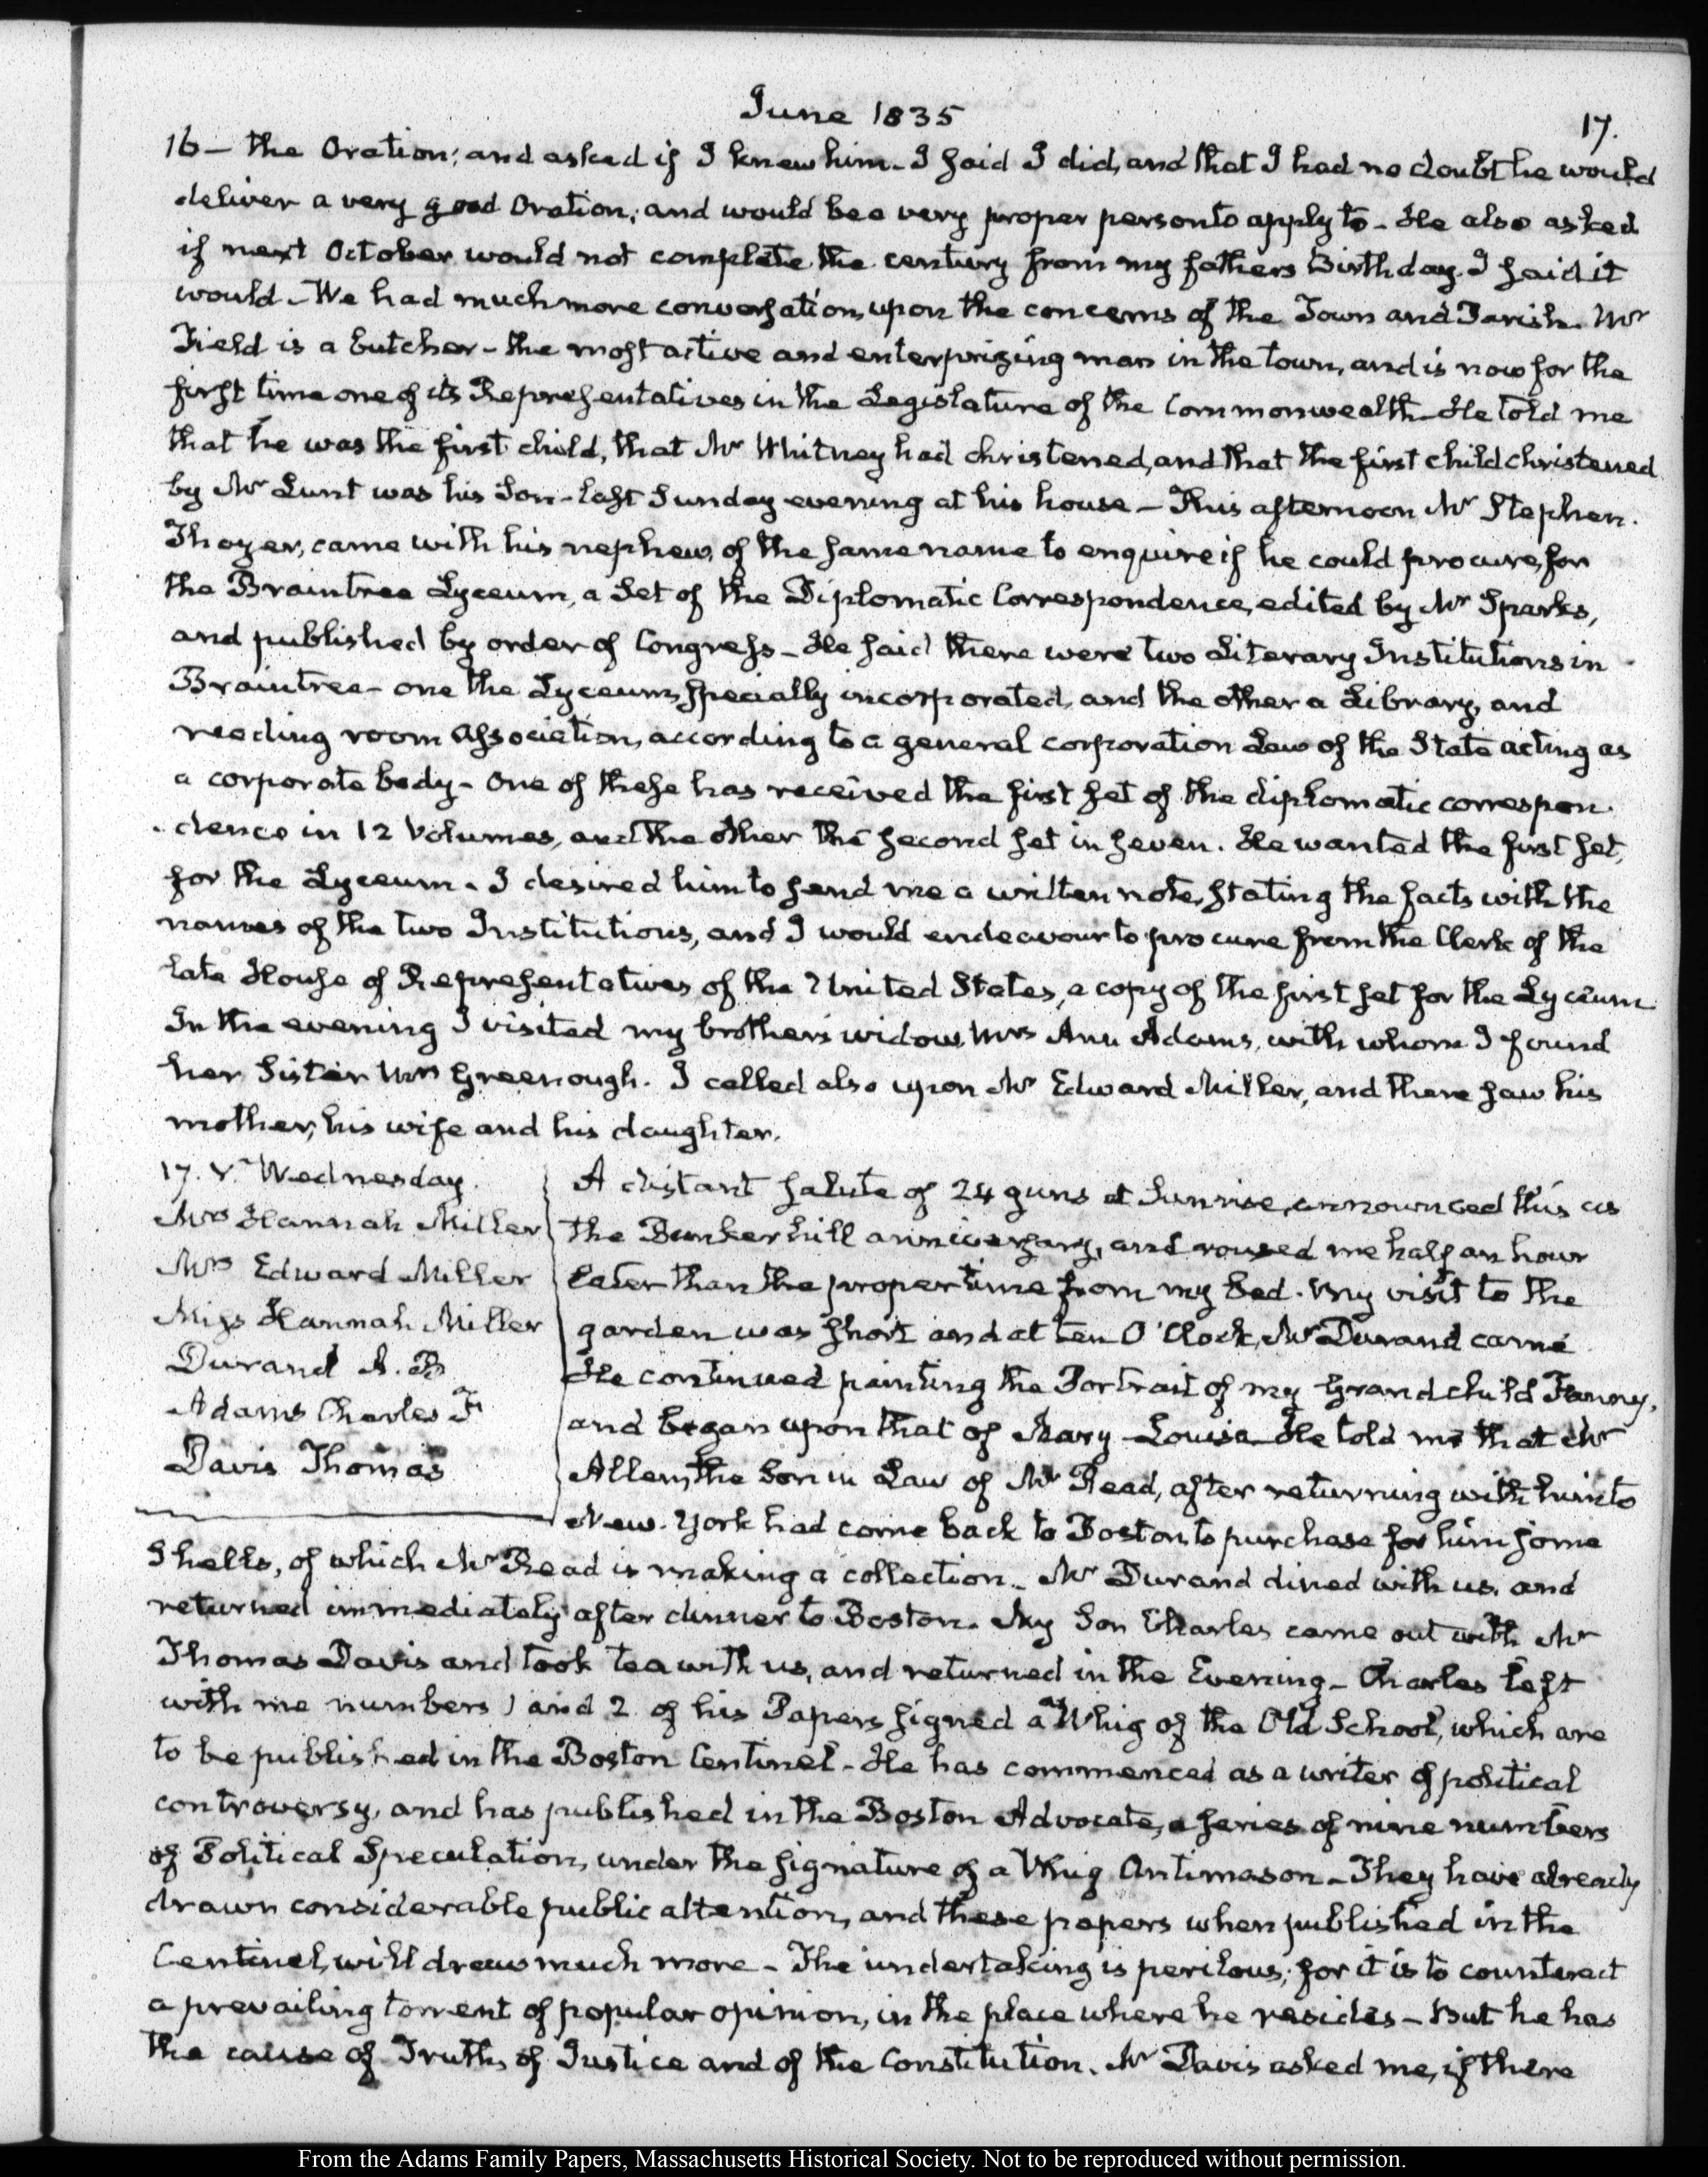 June 1835
17.
16 — the Oration; and asked if I knew him - I said I did, and that I had no doubt he would
deliver a very good Oration; and would be a very proper person to apply to - He also asked
if next October would not complete the century from my fathers Birth day. I said it
would - We had much more conversation, upon the concerns of the Town and Parish. Mr
Field is a butcher - the most active and enterprizing man in the town, and is now for the
first time one of its Representatives in the Legislature of the Commonwealth - He told me
that he was the first child, that Mr Whitney had christened, and that the first child christened
by Mr Lunt was his Son - last Sunday evening at his house — This afternoon Mr Stephen
Thayer, came with his nephew, of the same name to enquire if he could procure, for
the Braintree Lyceum, a Set of the Diplomatic Correspondence, edited by Mr Sparks,
and published by order of Congress - He said there were two Literary Institutions in
Braintree - one the Lyceum, specially incorporated, and the other a Library, and
reading room Association, according to a general corporation Law of the State acting as
a corporate body - One of these has received the first set of the diplomatic correspon-
dence in 12 Volumes, and the other the second set in seven. He wanted the first set,
for the Lyceum. I desired him to send me a written note, stating the facts with the
names of the two Institutions, and I would endeavour to procure from the Clerk of the
late House of Representatives of the United States, a copy of the first set for the Lyceum.
In the evening I visited my brother's widow, Mrs Ann Adams, with whom I found
her Sister Mrs Greenough. I called also upon Mr Edward Miller, and there saw his
mother, his wife and his daughter.
17. V. Wednesday.
Mrs Hannah Miller
Mrs Edward Miller
Miss Hannah Miller
Durand A. B
Adams Charles F
Davis Thomas
A distant salute of 24 guns at Sunrise, announced this as
the Bunker hill anniversary, and roused me half an hour
later than the proper time from my bed. My visit to the
garden was short and at ten O'Clock, Mr Durand came
He continued painting the Portrait of my Grandchild Fanny,
and began upon that of Mary Louisa - He told me that Mr
Allen, the Son in Law of Mr Read, after returning with him to
New-York had come back to Boston, to purchase for him some
Shells, of which Mr Read is making a collection. - Mr Durand dined with us. and
returned immediately after dinner to Boston. My Son Charles came out with Mr
Thomas Davis and took tea with us, and returned in the Evening - Charles left
with me numbers 1 and 2 of his Papers signed as a Whig of the Old School, which are
to be published in the Boston Centinel - He has commenced as a writer of political
controversy, and has published in the Boston Advocate, a series of nine numbers
of Political Speculation, under the signature of a Whig Antimason - They have already
drawn considerable public attention, and these papers when published in the
Centinel, will draw much more - The undertaking is perilous; for it is to counteract
a prevailing torrent of popular opinion, in the place where he resides - But he has
the cause of Truth, of Justice and of the Constitution. Mr Davis asked me, if there
From the Adams Family Papers, Massachusetts Historical Society. Not to be reproduced without permission.